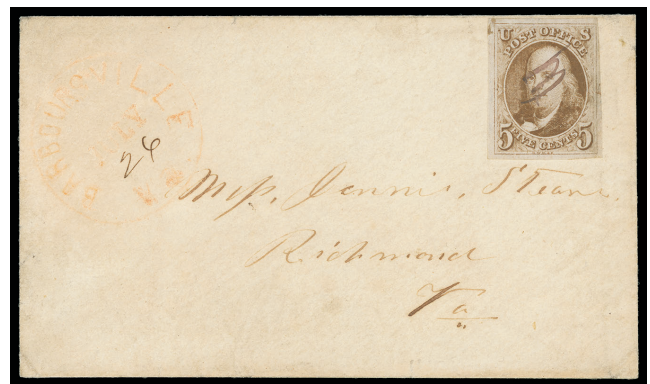 BARBOURSVILLE
26
U S
POST OFFICE
FIVE CENTS
5 5
Miss, Jennie, Stean
Richmond
Va